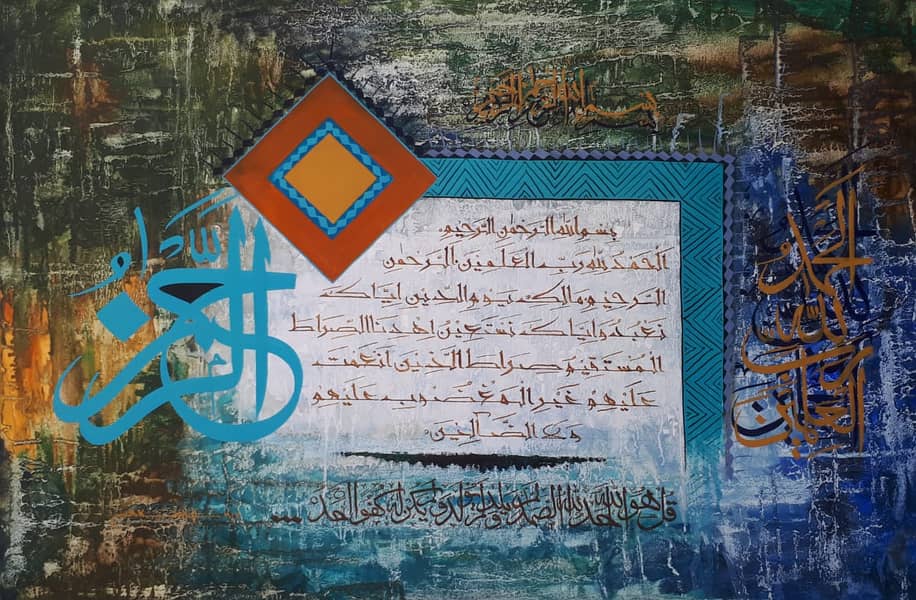 بسم الله الرحمن الرحيم
بسم الله الرَّحمٰن الرَّحيم
الحمد لله ربّ العلمين الرَّحمٰن
الرَّحيم مالك يوم الدين ايّاك
نعبد وايّاك نستعين اهدنا الصّراط
المستقيم صراط الَّذين انعمت
عليهم غير المغضوب عليهم
ولا الضّالّين
الحمد
لله
رب
العالمين
قل هو الله احد الله الصمد لم يلد ولم يولد ولم يكن له كفوا احد